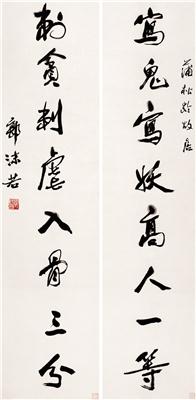 蒲松龄故居
寫鬼寫妖高人一等
刺貪刺虐入骨三分
郭沫若